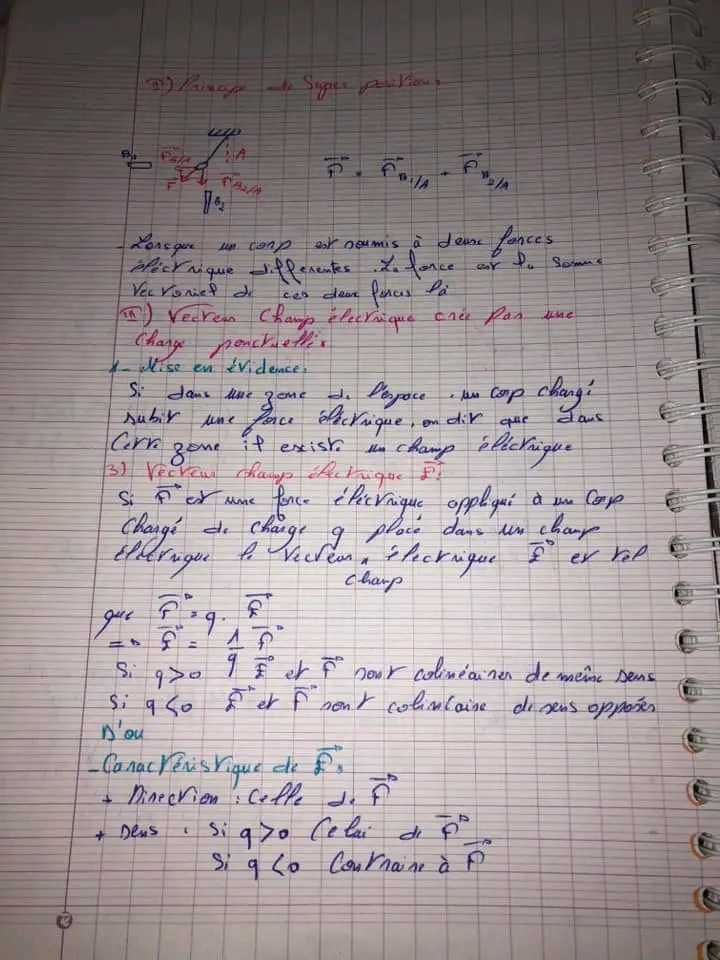 II) Principe de Super position
B1
F B1/A
A
F
F B2/A
B2
F = F B1/A + F B2/A
- Lorsque un corp est soumis à deux forces
éléctrique differentes. La force est la somme
vectoriel de ces deux forces là
III) Vecteur Champ électrique crée par une
Charge ponctuelle
1- Mise en évidence:
Si dans une zone de l'espace, un corp chargé
subit une force électrique, on dit que dans
Cette zone il existe un champ éléctrique
3) Vecteur champ électrique E:
Si F est une force éléctrique appliqué à un Corp
Chargé de charge q placé dans un champ
électrique le vecteur champ électrique E est tel
que F = q. E
=> E = 1/q F
Si q>0 E et F sont colinéaires de même sens
Si q<0 E et F sont colinéaire de sens opposés
D'où
- Caractéristique de E:
+ Direction : Celle de F
+ Sens : Si q>0 Celui de F
Si q<0 Contraire à F